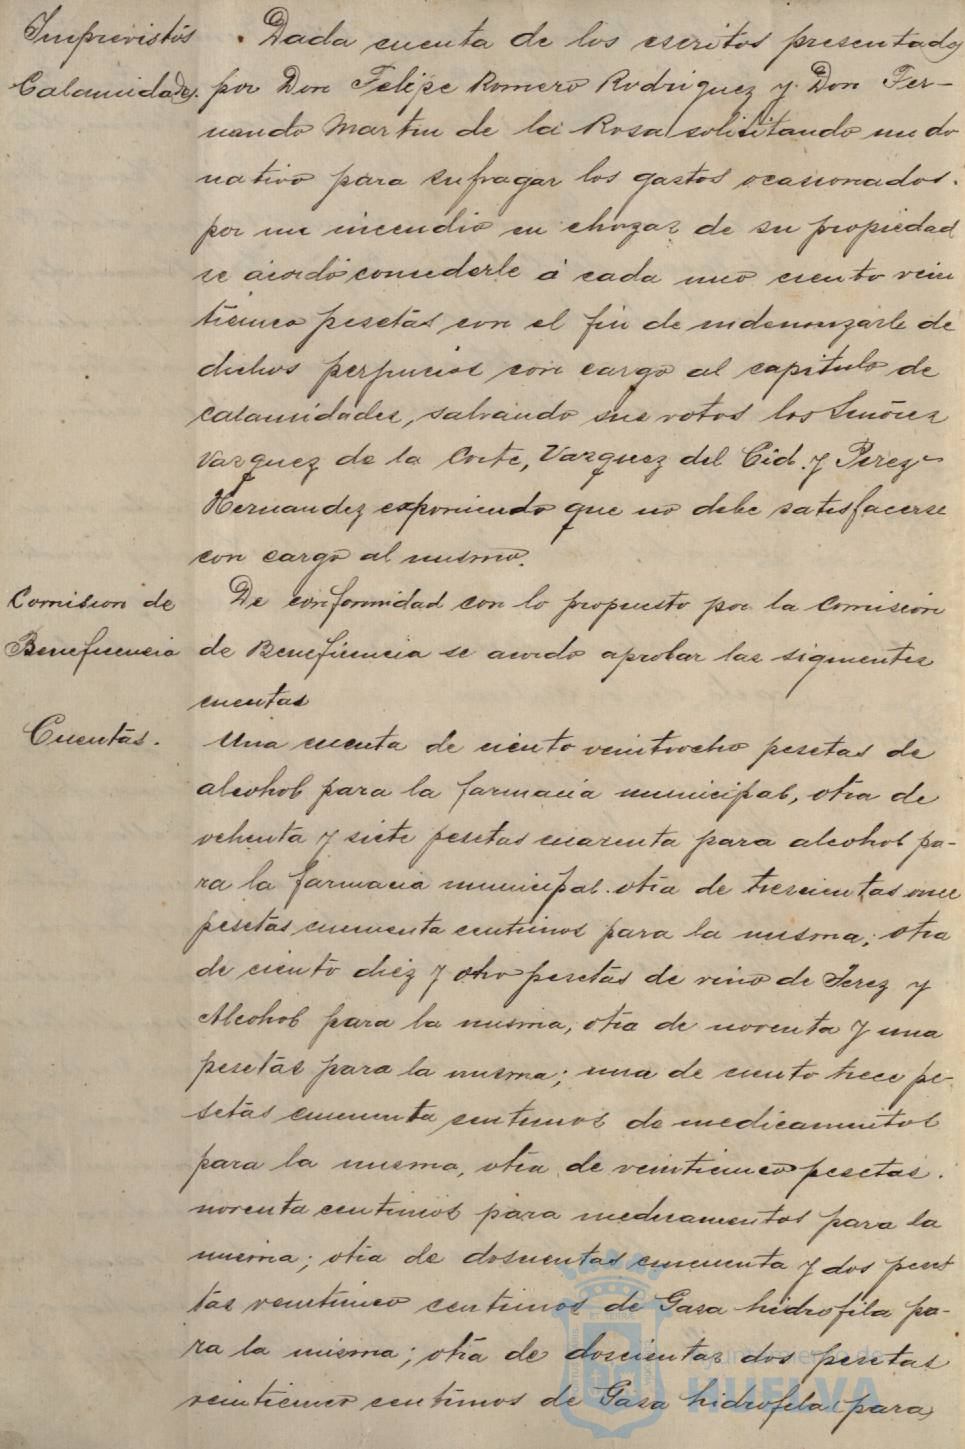 Imprevistos
Calamidades.
Dada cuenta de los escritos presentados
por Don Felipe Romero Rodriguez y Don Fer-
nando Martin de la Rosa solisitando un do
nativo para sufragar los gastos ocasionados.
por un incendio en chozas de su propiedad
se acordó consederle á cada uno ciento vein
ticinco pesetas con el fin de indemnizarle de
dichos perjuicios con cargo al capitulo de
calamidades, salvando sus votos los Señores
Vazquez de la Corte, Vazquez del Cid y Perez
Hernandez exponiendo que no debe satisfacerse
con cargo al mismo.
Comision de
Beneficencia
De conformidad con lo propuesto por la Comisión
de Beneficencia se acordo aprobar las siguientes
cuentas
Cuentas.
Una cuenta de ciento veintiocho pesetas de
alcohol para la farmacia municipal, otra de
ochenta y siete pesetas cuarenta para alcohol pa-
ra la farmacia municipal. otra de trescientas once
pesetas cincuenta centimos para la misma; otra
de ciento diez y ocho pesetas de vino de Jerez y
Alcohol para la misma, otra de noventa y una
pesetas para la misma; una de ciento trece pe-
setas cincuenta centimos de medicamentos
para la misma, otra de veinticinco pesetas.
noventa centimos para medicamentos para la
misma; otra de doscientas cincuenta y dos pese
tas veinticinco centimos de Gasa hidrofila pa-
ra la misma; otra de doscientas dos pesetas
veinticinco centimos de Gasa hidrofila para
Ayuntamiento de
HUELVA